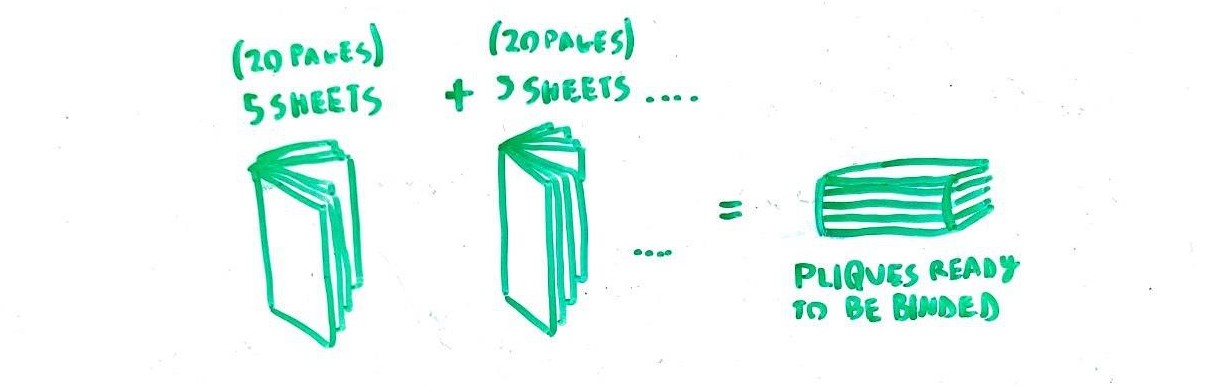 (20 PAGES)
5 SHEETS
+
(20 PAGES)
5 SHEETS ....
....
=
PLIQUES READY
TO BE BINDED